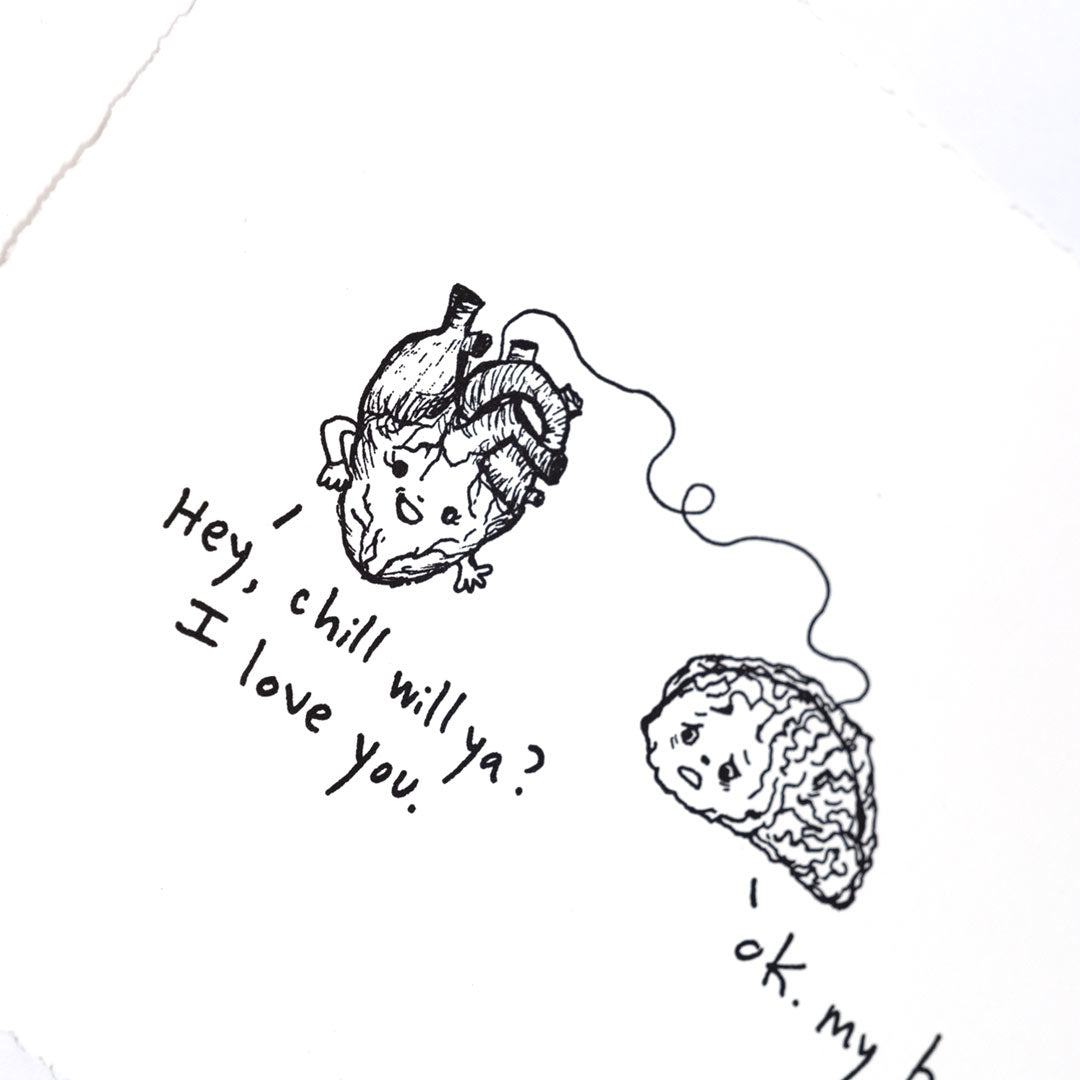 Hey, chill will ya?
I love you.
ok. my